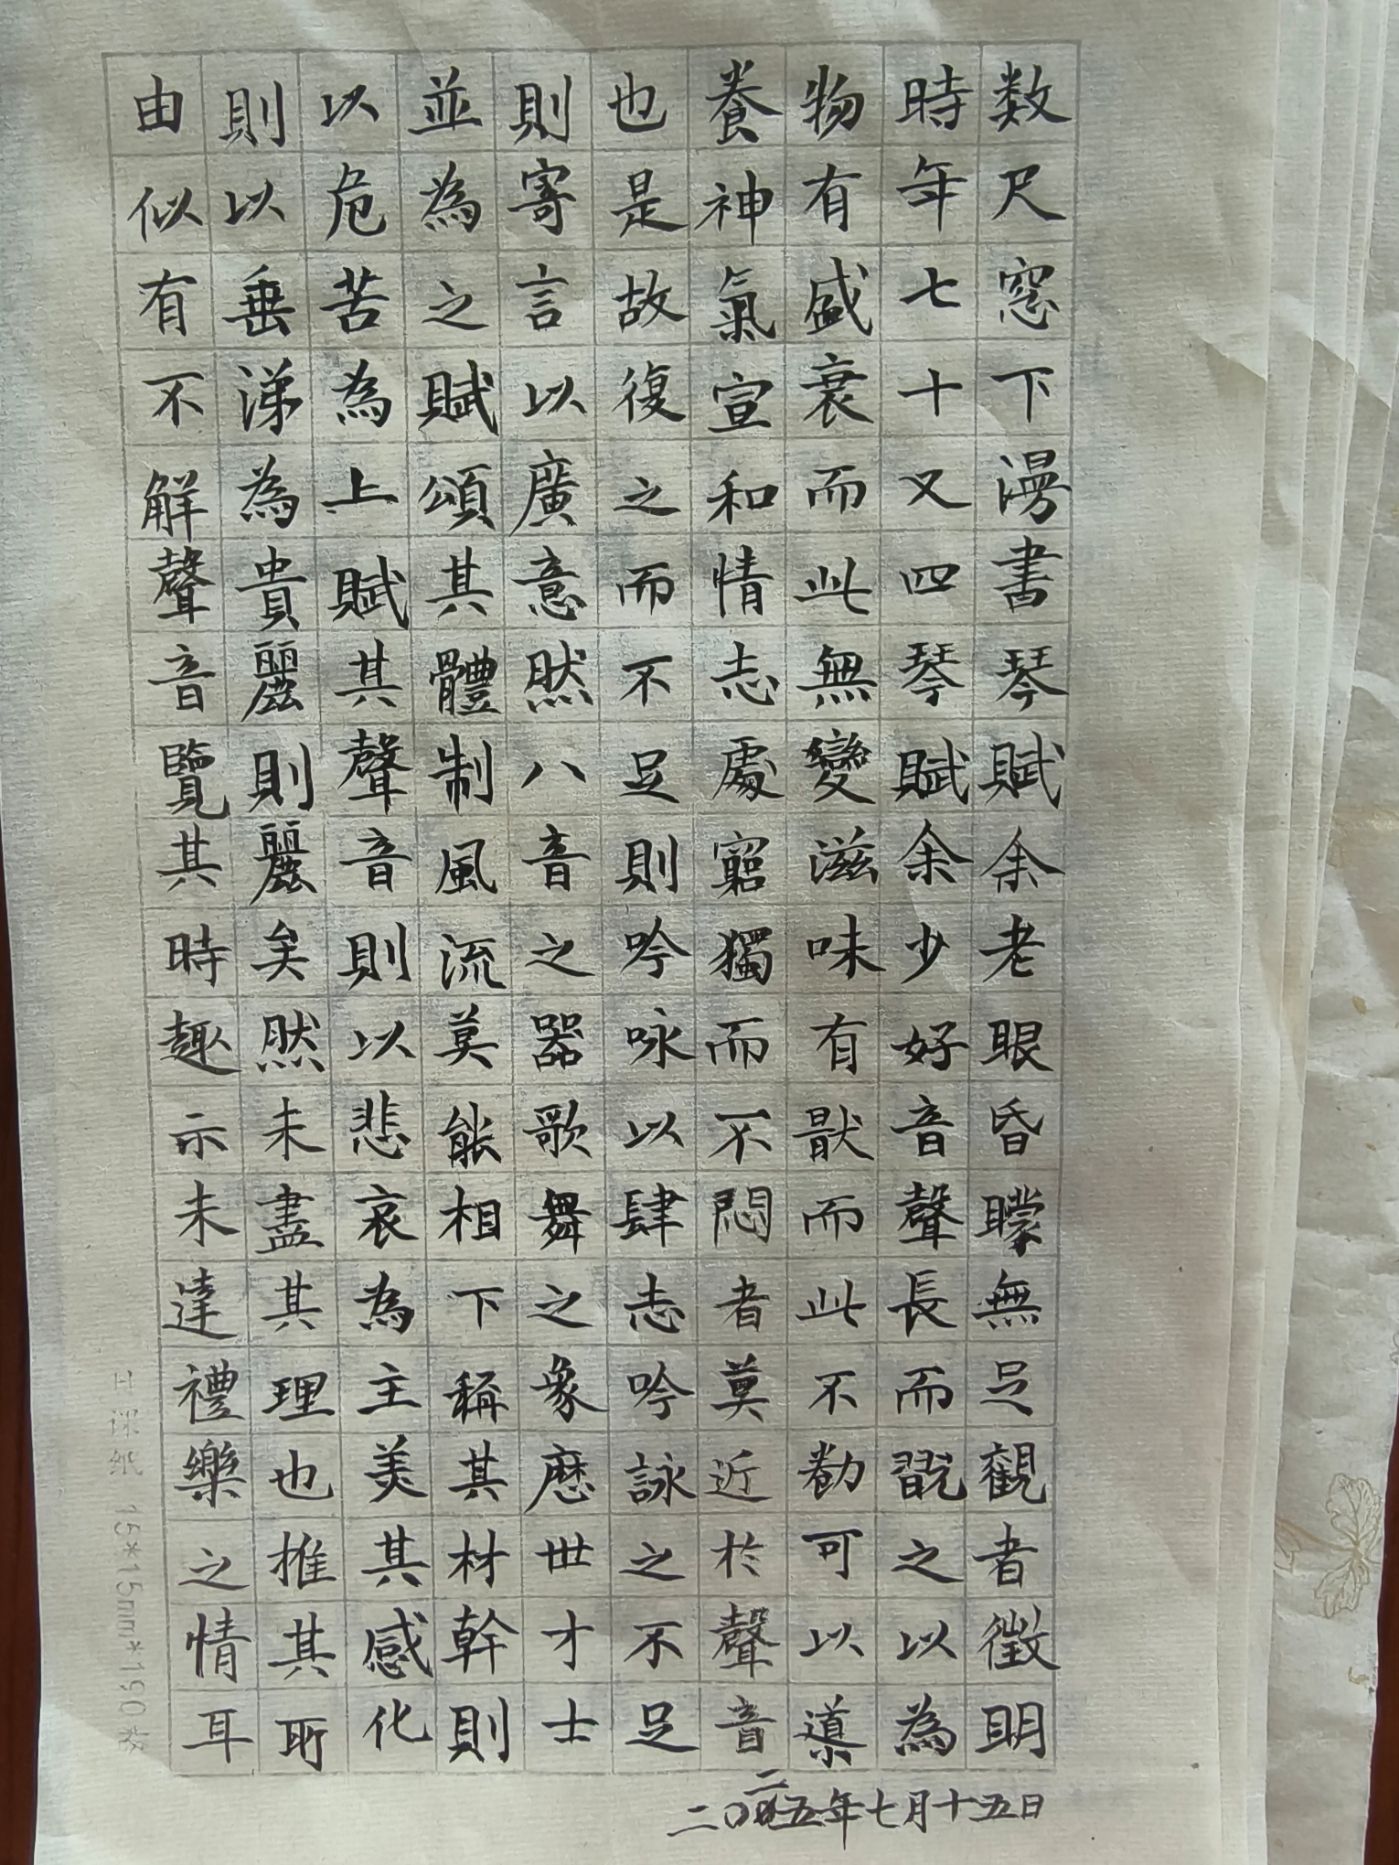 数尺窓下漫書琴賦余老眼昏矇無足觀者徵明
時年七十又四琴賦余少好音聲長而翫之以為
物有盛衰而此無變滋味有猒而此不勌可以導
養神氣宣和情志處窮獨而不悶者莫近於聲音
也是故復之而不足則吟咏以肆志吟詠之不足
則寄言以廣意然八音之器歌舞之象歷世才士
並為之賦頌其體制風流莫能相下稱其材幹則
以危苦為上賦其聲音則以悲哀為主美其感化
則以垂涕為貴麗則麗矣然未盡其理也推其所
由似有不解聲音覽其時趣示未達禮樂之情耳
二〇二五年七月十五日
15*15mm*190格